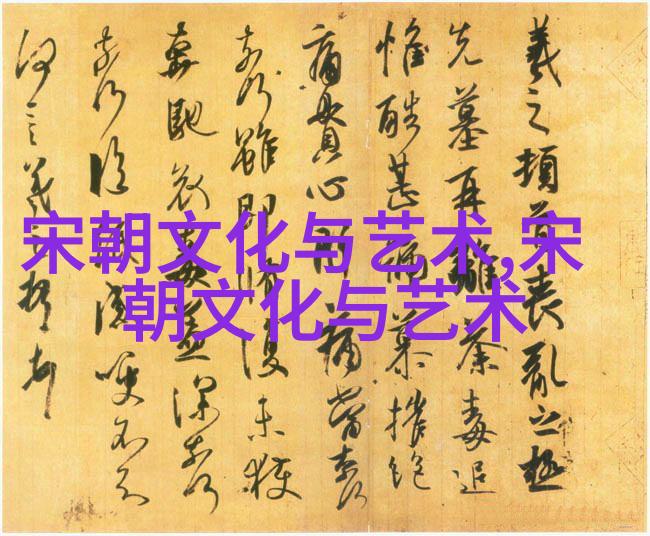 宋朝文化与艺术,宋
朝文化与艺术
羲之頓首喪亂之極
先墓再離荼毒追
惟酷甚號慕摧絕
痛貫心肝痛當柰何
柰何雖即脩復未獲
奔馳哀毒益深柰何
柰何臨紙感哽不知
何言羲之頓首